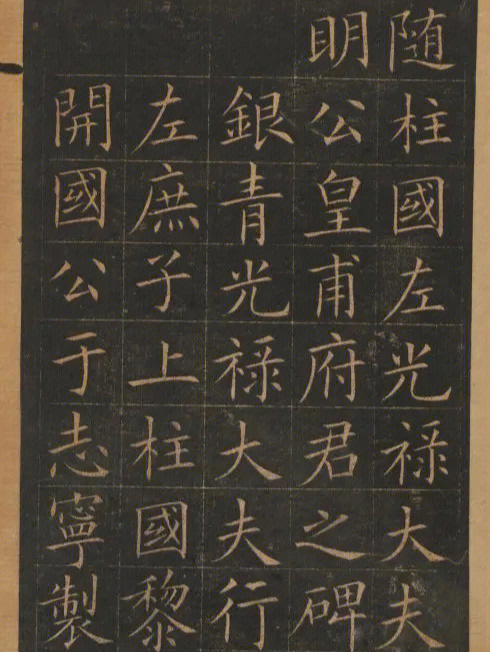 随柱國左光禄大夫
明公皇甫府君之碑
銀青光禄大夫行
左庶子上柱國黎
開國公于志寧製